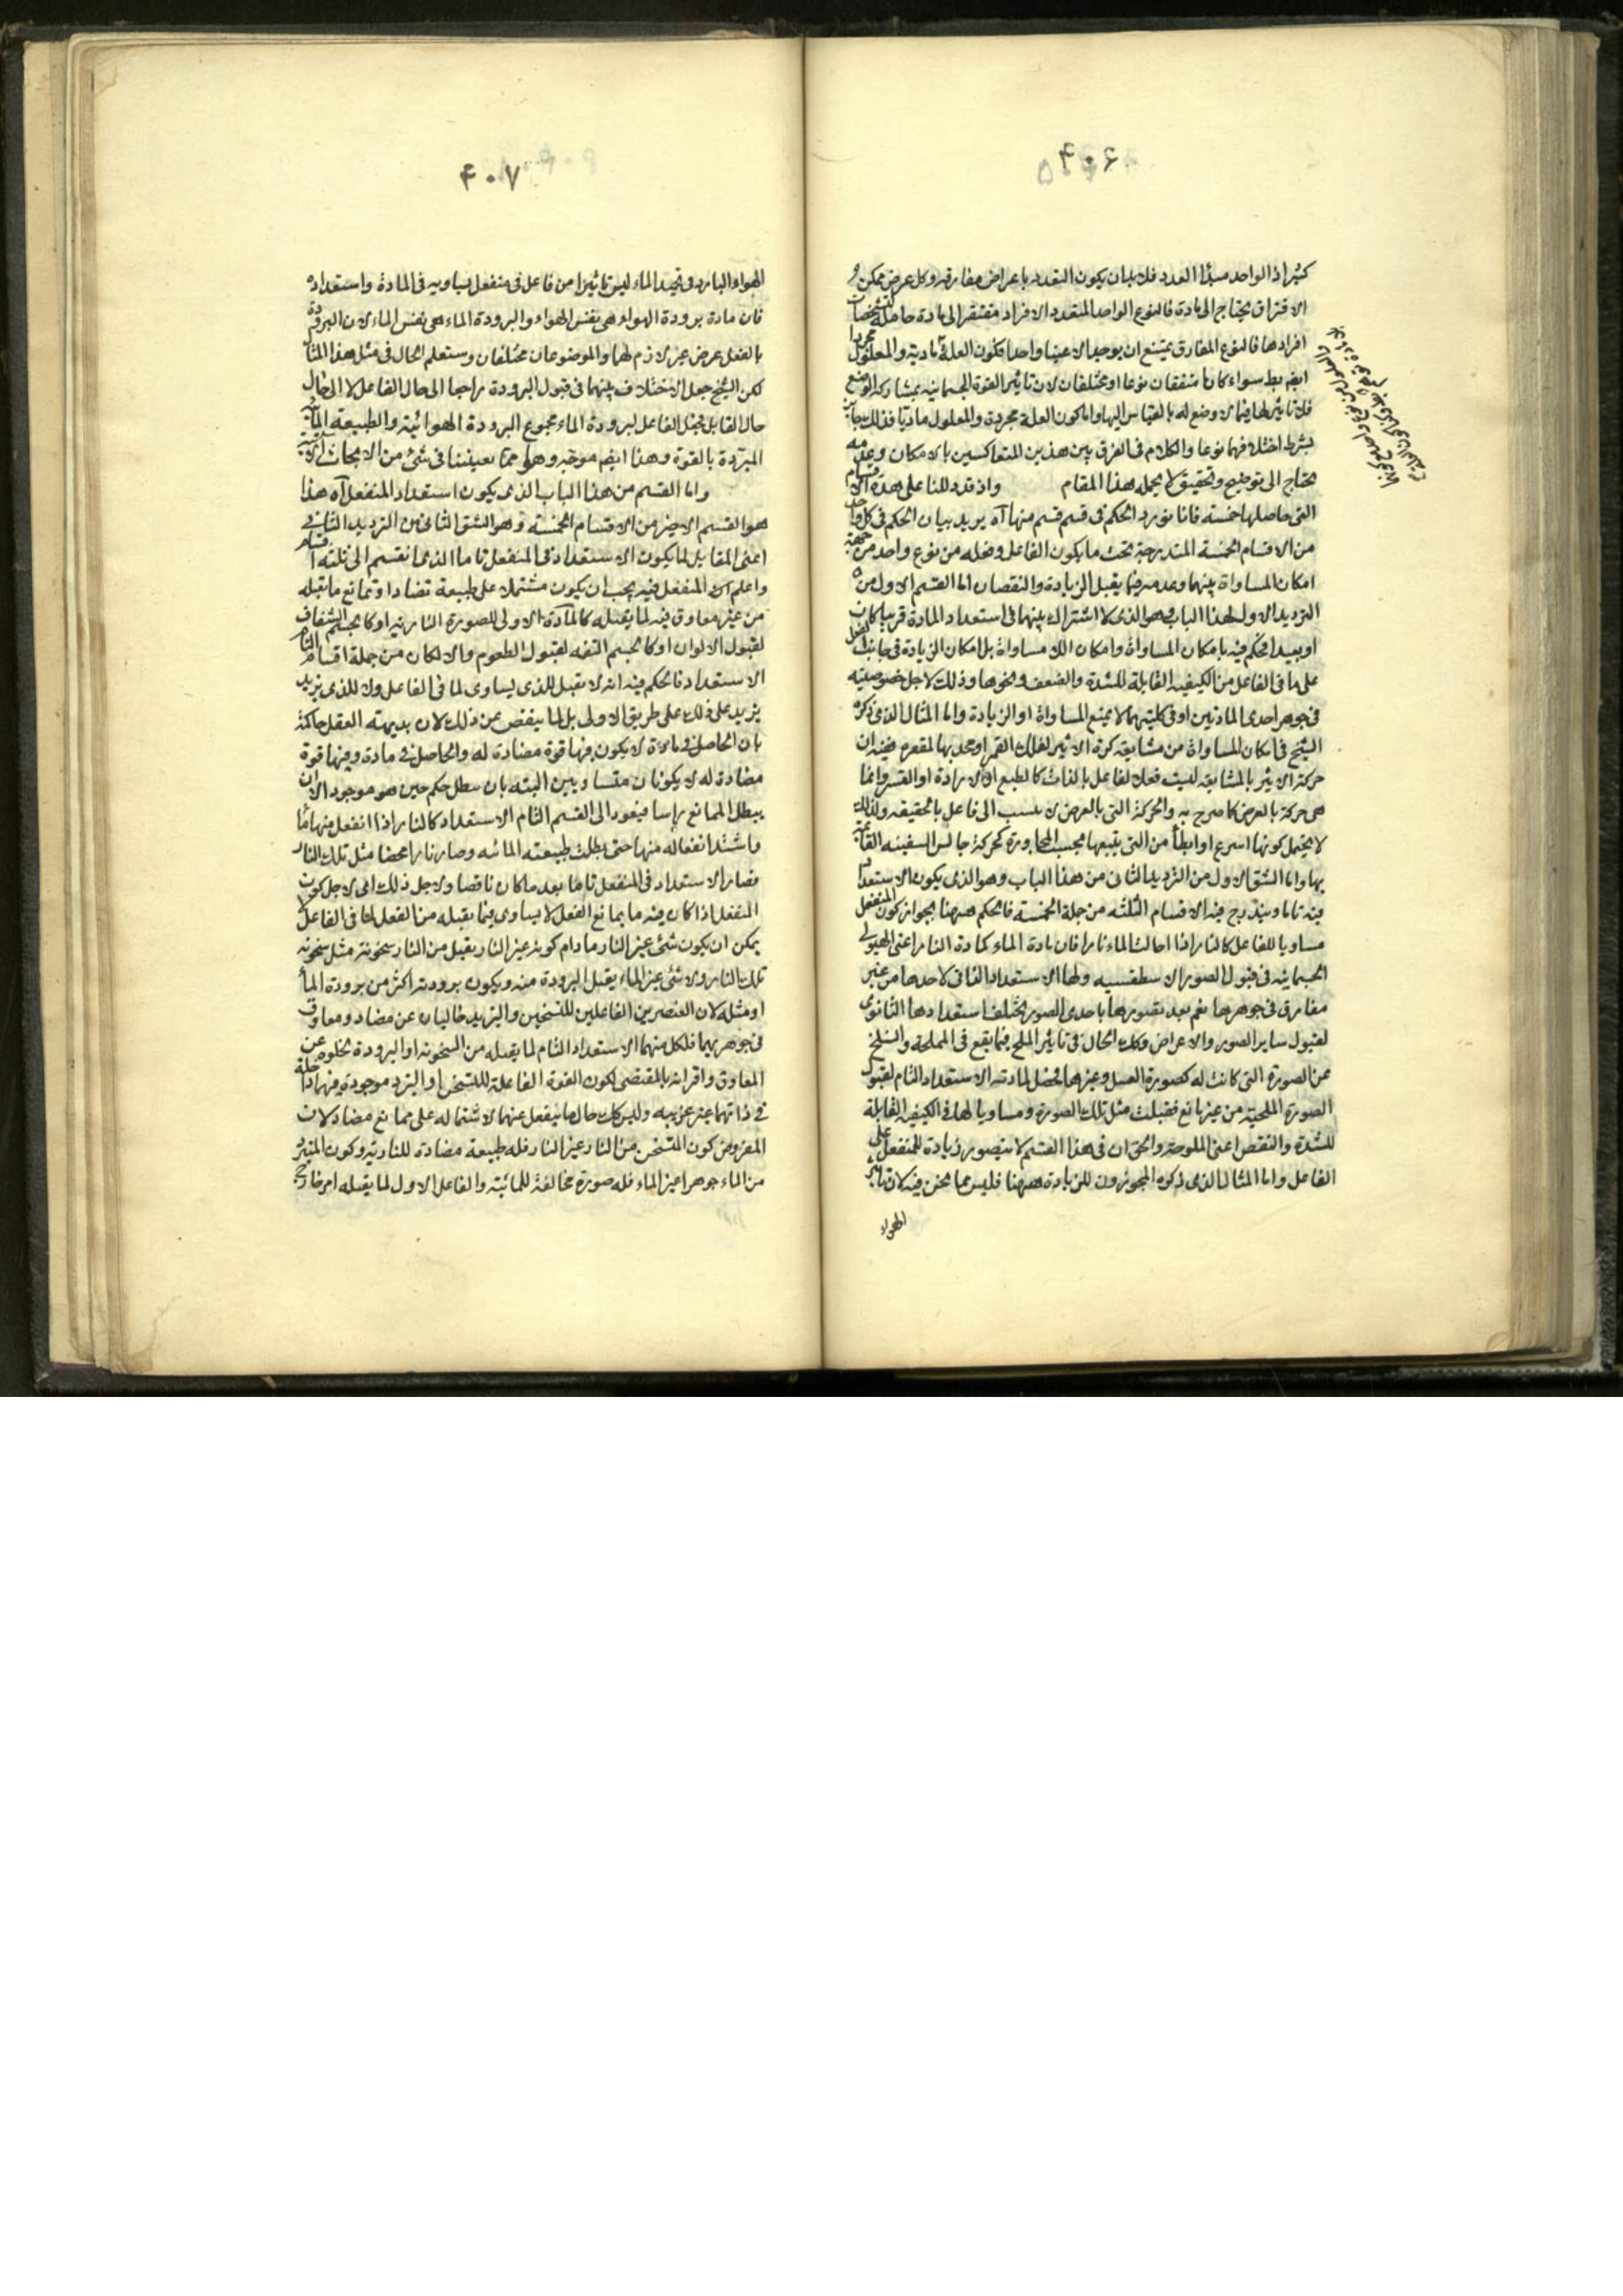 ۴۰۶
كثير اذ الواحد مبدأ العدد فلا بد ان يكون التعدد باعراض مفارقه وكل عرض ممكن
الافتراق يحتاج الى مادة فالنوع الواحد المتعدد الافراد مفتقر الى مادة حاملة لتشخصات
افرادها فالنوع المفارق يمتنع ان يوجد الا عينا واحدا فكون العلة مادية والمعلول مجردا
ايضا بط سواء كانا متفقان نوعا او مختلفان لان تاثير القوة الجسمانيه بمشاركه الوضع
فلا تاثير لها فيما لا وضع له بالقياس اليها واما كون العلة مجردة والمعلول ماديا فذلك جايز
بشرط اختلافهما نوعا والكلام فى الفرق بين هذين المتعاكسين بالامكان وعدمه
يحتاج الى توضيح وتحقيق لا يحمله هذا المقام واذ قد دللنا على هذه الاقسام
التى حاصلها خمسه فانا نورد الحكم فى قسم قسم منها آه يريد بيان الحكم فى كل واحد
من الاقسام الخمسة المندرجة تحت ما يكون الفاعل وفعله من نوع واحد من جهة
امكان المساواة بينهما وعدمه فيما يقبل الزيادة والنقصان اما القسم الاول من
الترديد الاول لهذا الباب هو الذى لا اشتراك بينهما فى استعداد المادة قريبا كان
او بعيدا فحكم فيه بامكان المساواة وامكان اللا مساواة بل امكان الزيادة فى جانب المنفعل
على ما فى الفاعل من الكيفيه القابلة للشدة والضعف ونحوها وذلك لاجل خصوصيه
فى جوهر احدى المادتين او فى كلتيهما لا يمنع المساواة او الزيادة واما المثال الذى ذكره
الشيخ فى امكان المساواة من مشايعة كرة الاثير لفلك القمر او محدبها لمقعره ففيه ان
حركة الاثير بالمشايعه ليست فعلا لفاعل بالذات كالطبع او الارادة او القسر وانما
هى حركة بالعرض كما صرح به والحركة التى بالعرض لا ينسب الى فاعل بالحقيقه ولذلك
لا يحتمل كونها اسرع او ابطأ من التى يتبعها بحسب المجاورة كحركة جالس السفينه القائمة
بها واما الشق الاول من الترديد الثانى من هذا الباب وهو الذى يكون الاستعداد
فيه تاما ويندرج فيه الاقسام الثلثه من جملة الخمسة فالحكم ههنا بجواز كون المنفعل
مساويا للفاعل كالنار اذا احالت الماء نارا فان مادة الماء كمادة النار اعنى الهيولى
الجسمانيه فى قبول الصور الاسطقسيه ولها الاستعداد الذاتى لاحدها من غير
مفارق فى جوهرها نعم بعد تصورها باحدى الصور يختلف استعدادها الثانوى
لقبول ساير الصور والاعراض وكك الحال فى تاثير الملح فيما يقع فى المملحة وانسلخ
عن الصورة التى كانت له كصورة العسل وغيرها يحصل لمادته الاستعداد التام لقبول
الصورة الملحية من غير مانع فقبلت مثل تلك الصورة ومساويا لها فى الكيفيه القابلة
للشدة والنقص اعنى الملوحة والحق ان فى هذا القسم لا يتصور زيادة للمنفعل على
الفاعل واما المثال الذى ذكره المجوزون للزيادة ههنا فليس مما نحن فيه لان تاثير
الهواء
۴۰۷
الهواء البارد فى تجميد الماء ليس تاثيرا من فاعل فى منفعل يساويه فى المادة واستعداده
فان مادة برودة الهواء هى نفس الهواء والبرودة الماء هى نفس الماء لان البرودة
بالفعل عرض غير لازم لهما والموضوعان مختلفان وستعلم الحال فى مثل هذا المثال
لكن الشيخ جعل الاختلاف بينهما فى قبول البرودة راجعا الى حال الفاعل لا الى حال
حال القابل فجعل الفاعل لبرودة الماء مجموع البرودة الهوائية والطبيعة المائية
المبردة بالقوة وهذا ايضا موجه وهو مما يعيننا فى شئ من الابحاث الآتية
واما القسم من هذا الباب الذى يكون استعداد المنفعل آه هذا
هو القسم الاخير من الاقسام الخمسه وهو الشق الثانى من الترديد الثانى
اعنى المقابل لما يكون الاستعداد فى المنفعل تاما الذى انقسم الى ثلثه اقسام
واعلم ان المنفعل فيه يجب ان يكون مشتملا على طبيعة تضاد او تمانع ما تقبله
من غير معاوق فيه لما يقبله كالمادة الاولى للصورة الناريه او كالجسم الشفاف
لقبول الالوان او كالجسم التفه لقبول الطعوم والا لكان من جملة اقسام التام
الاستعداد فالحكم فيه انه لا يقبل للذى يساوى لما فى الفاعل ولا للذى يزيد
يزيد على ذلك على طريق الاولى بل لما ينقص عن ذلك لان بديهة العقل حاكمة
بان الحاصل فى مادة لا يكون فيها قوة مضادة له والحاصل فى مادة وفيها قوة
مضادة له لا يكونان متساويين البته بان يبطل حكم حين هو موجود الا ان
يبطل الممانع راسا فيعود الى القسم التام الاستعداد كالنار اذا انفعل منها ماء
واشتد انفعاله منها حتى بطلت طبيعته المائيه وصار نارا محضا مثل تلك النار
فصار الاستعداد فى المنفعل تاما بعد ما كان ناقصا ولاجل ذلك اى لاجل كون
المنفعل اذا كان فيه ما يمانع الفعل لا يساوى فيما يقبله من الفعل لما فى الفاعل لا
يمكن ان يكون شئ غير النار ما دام كونه غير النار يقبل من النار سخونة مثل سخونة
تلك النار ولا شئ غير الماء يقبل البرودة منه ويكون برودته اكثر من برودة الماء
او مثله لان العنصرين الفاعلين للتسخين والتبريد خاليان عن مضاد ومعاوق
فى جوهريهما فلكل منهما الاستعداد التام لما يقبله من السخونة او البرودة لخلوه عن
المعاوق واقرانه بالمقتضى لكون القوة الفاعلة للتسخن او التبرد موجودة فيهما داخلة
فى ذاتهما غير غريبه وليس كك حال ما ينفعل عنهما لاشتماله على ممانع مضاد لان
المفروض كون المتسخن من النار غير النار فله طبيعة مضادة للناريه وكون المتبرد
من الماء جوهرا غير الماء فله صورة مخالفة للمائية والفاعل الاول لما يقبله امر خارج